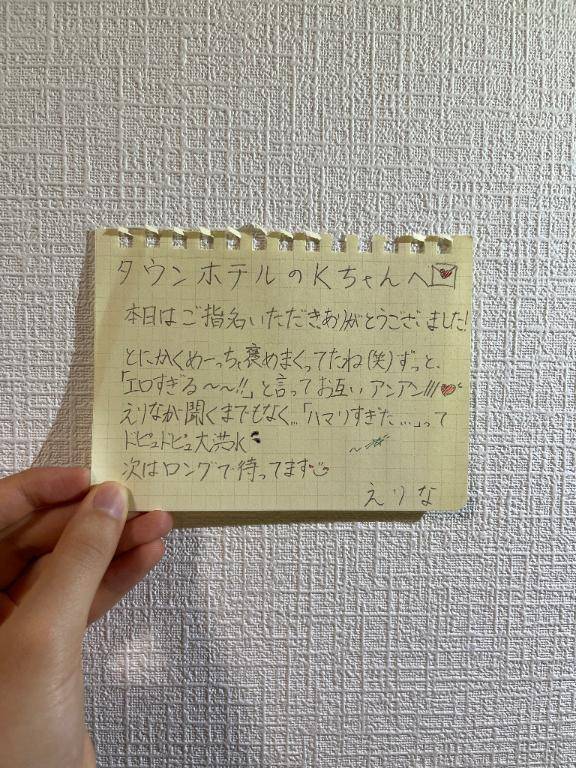 タウンホテルのKちゃんへ
本日はご指名いただきありがとうございました!
とにかくめーっちゃ褒めまくってたね(笑)ずっと、
「エロすぎる〜〜!!」と言ってお互いアンアン///
えりなが聞くまでもなく…「ハマりすぎた…」って
ドピュドピュ大洪水
次はロングで待ってます
えりな